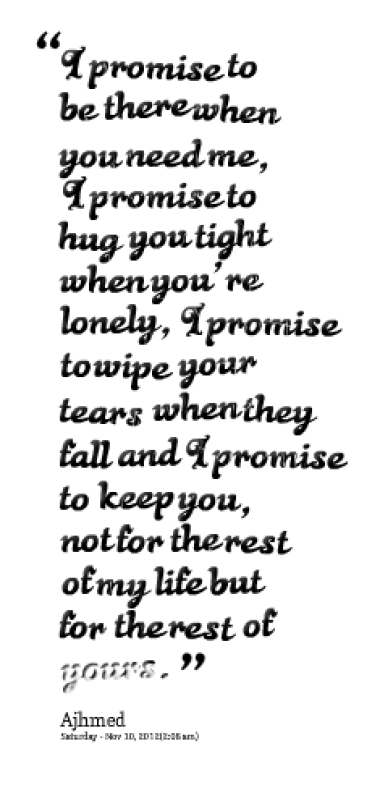 “I promise to
be there when
you need me,
I promise to
hug you tight
when you're
lonely, I promise
to wipe your
tears when they
fall and I promise
to keep you,
not for the rest
of my life but
for the rest of
yours.”
Ajhmed
Saturday - Nov 10, 2012(2:06 am)